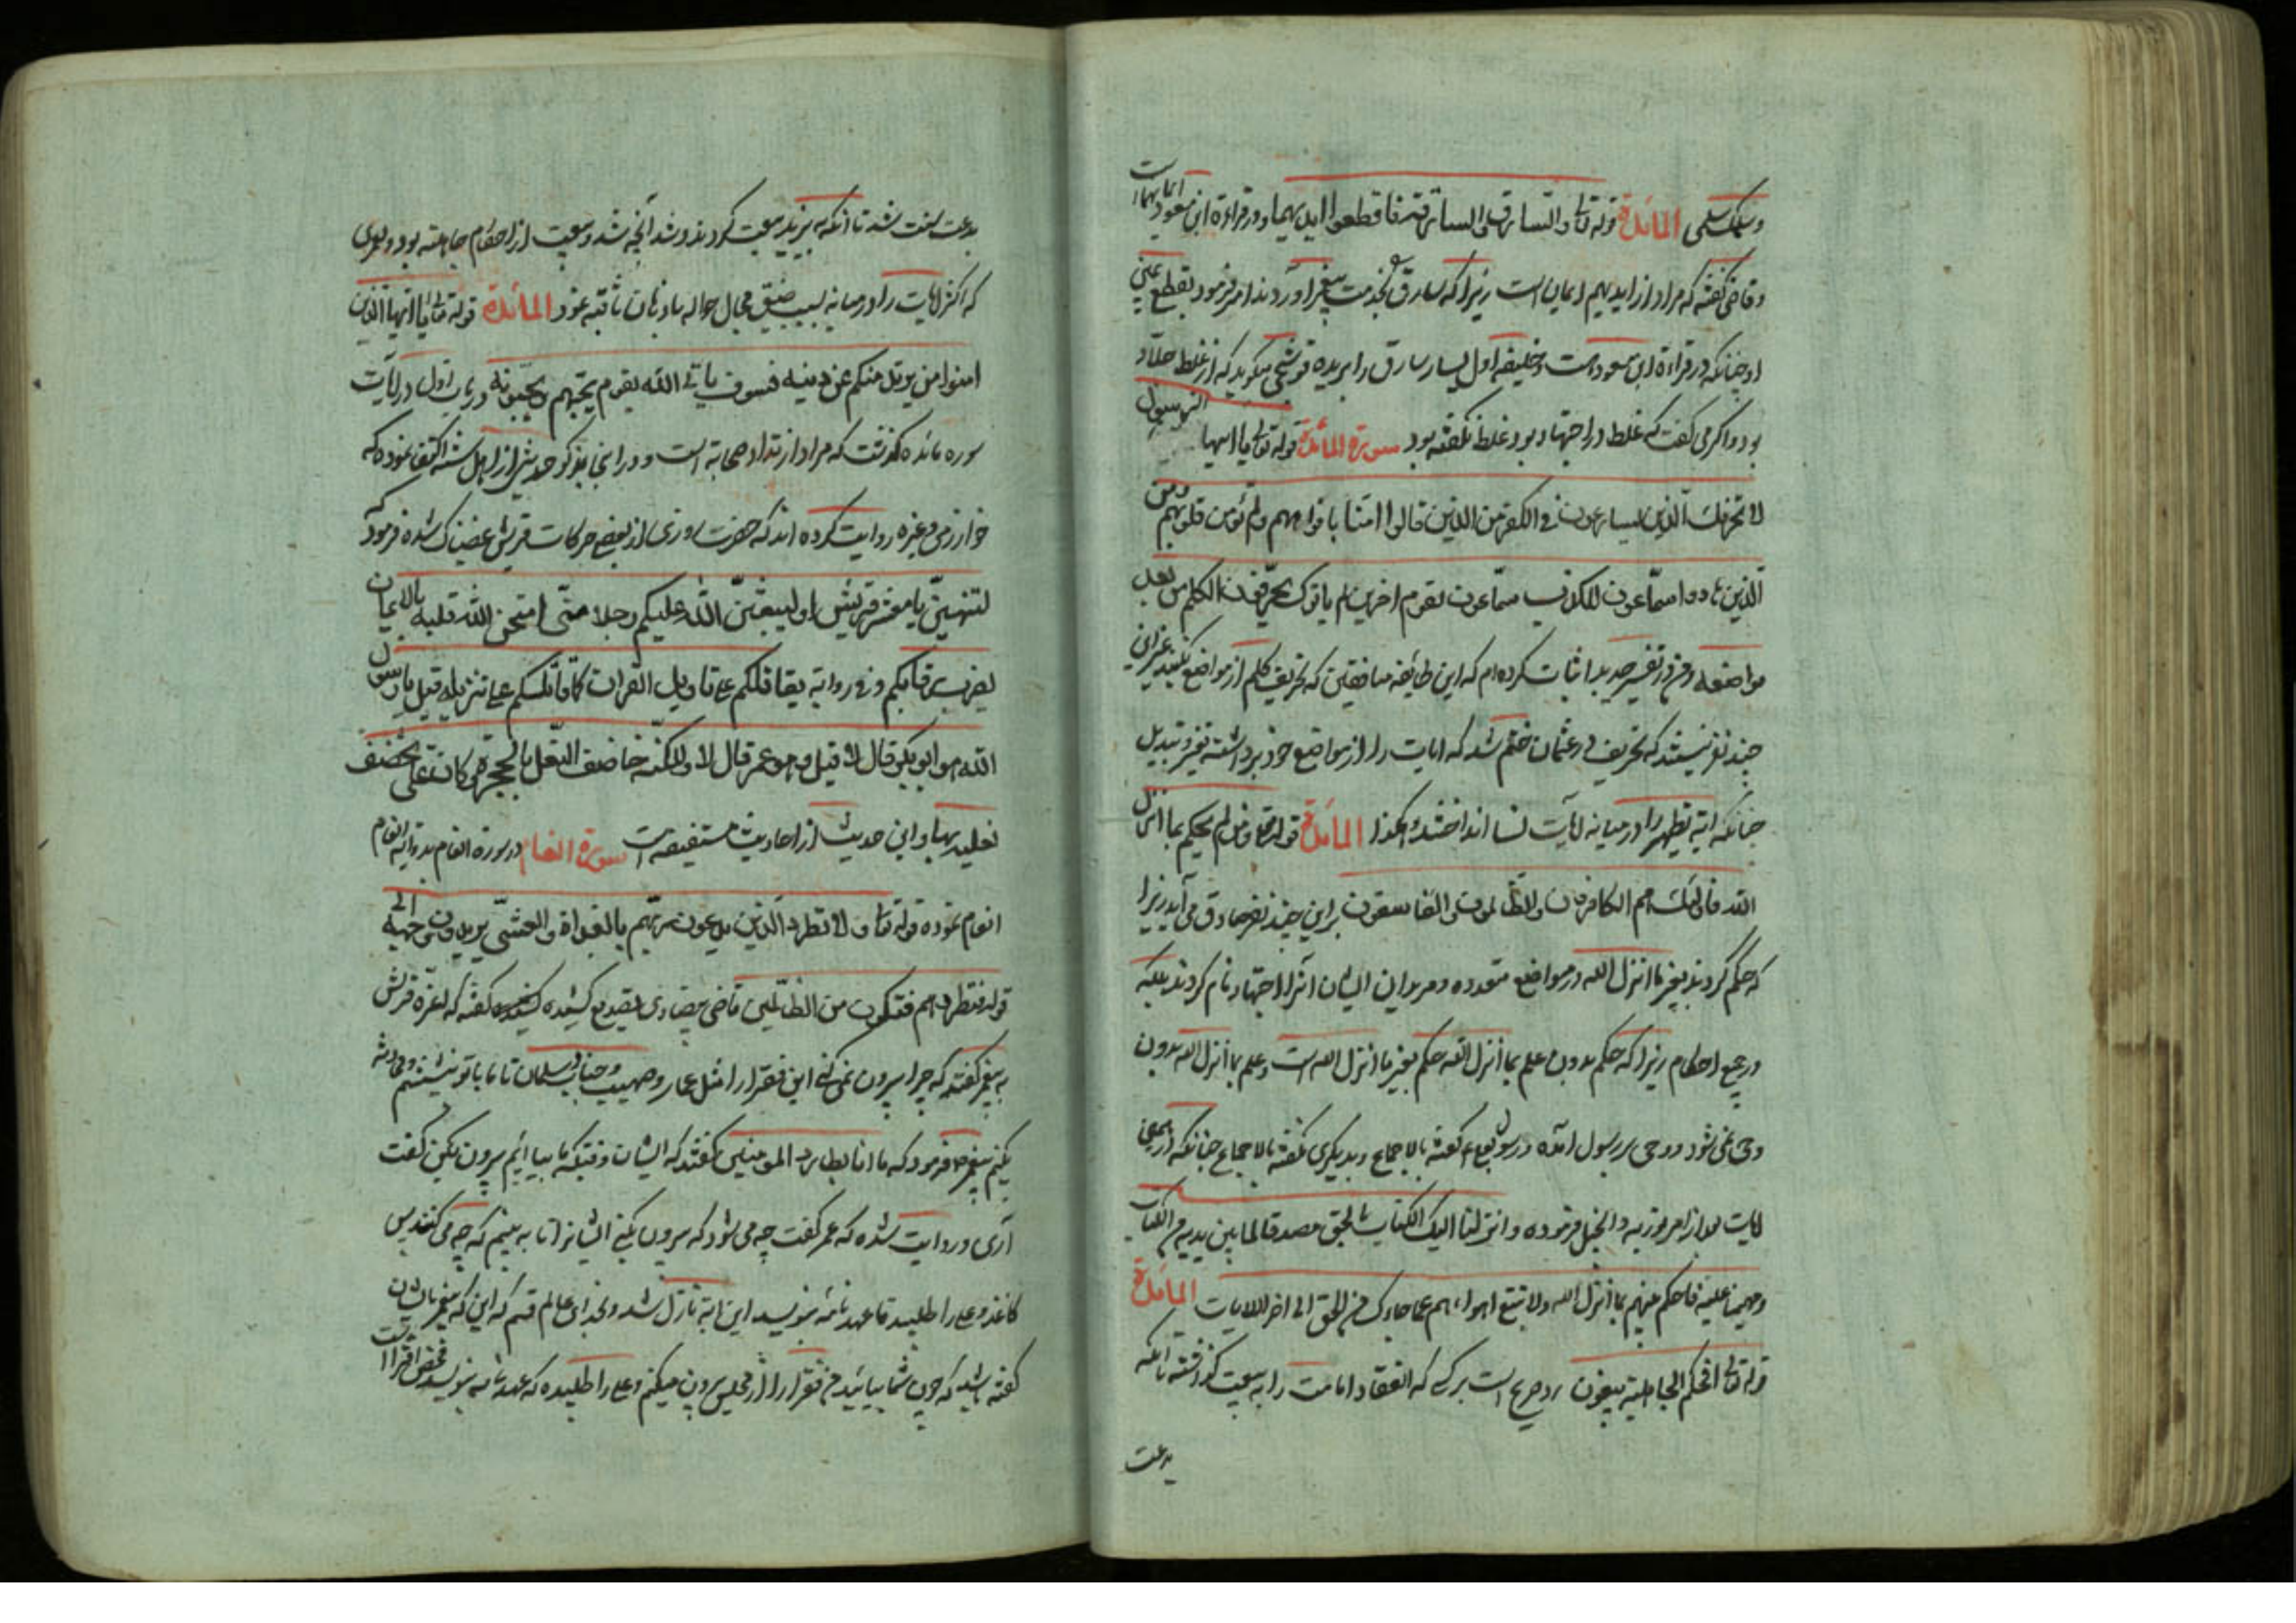 وسلمک سلمی المائدة قوله تعالی والسارق والسارقة فاقطعوا ایدیهما ودر قراءة ابن مسعود ایمانهما است
وقاضی گفته که مراد از ایدیهم ایمان است زیرا که سارق بخدمت پیغمبر آوردند امر فرمود بقطع یمنی
او چنانکه در قراءة ابن مسعود است وخلیفه اول یسار سارق را بریده قوشجی میگوید که از غلط جلاد
بود واگر می گفت که غلط در اجتهاد بود غلط نگفته بود سورة المائدة قوله تعالی یا ایها الرسول
لا یحزنک الذین یسارعون فی الکفر من الذین قالوا امنا بافواههم ولم تؤمن قلوبهم ومن
الذین هادوا سماعون للکذب سماعون لقوم اخرین لم یاتوک یحرفون الکلم من بعد
مواضعه ومن در تفسیر جدید اثبات کرده ام که این طائفه منافقین که تحریف کلم از مواضع میکنند غیر این
چند نفر نیستند که تحریف در عثمان ختم شد که ایات را از مواضع خود برداشته تغیر وتبدیل
چنانکه ایة تطهیر را در میانه ایات نسا انداختند وهکذا المائدة قوله تعالی ومن لم یحکم بما انزل
الله فاولئک هم الکافرون والظالمون والفاسقون بر این چند نفر صادق می آید زیرا
که حکم کردند بغیر ما انزل الله در مواضع متعدده ومریدان ایشان آنرا اجتهاد نام کردند بلکه
در جمیع احکام زیرا که حکم بدون علم بما انزل الله حکم بغیر ما انزل الله است وعلم بما انزل الله بدون
وحی نمی شود ووحی بر رسول آمده ورسول بعلی گفته بالاجماع وبدیگری نگفته بالاجماع چنانکه در همین
ایات بعد از امر بتوریة وانجیل فرموده وانزلنا الیک الکتاب بالحق مصدقا لما بین یدیه من الکتاب
ومهیمنا علیه فاحکم بینهم بما انزل الله ولا تتبع اهواءهم عما جاءک من الحق الی اخر الایات المائدة
قوله تعالی افحکم الجاهلیة یبغون رد صریح است بر کسی که انعقاد امامت را به بیعت گرفته با آنکه
بدعت
بدعت سخت شد تا آنکه به یزید بیعت کردند وشد آنچه شد وبیعت از احکام جاهلیة بود
که اکثر ایات را در میانه بسبب ضیق مجال حواله باذهان ثاقبه نمود المائدة قوله تعالی یا ایها الذین
امنوا من یرتد منکم عن دینه فسوف یاتی الله بقوم یحبهم ویحبونه در باب اول در ایات
سوره مائده گذشت که مراد ارتداد صحابة است ودر اینجا بذکر حدیثی از اهل سنة اکتفا نموده که
خوارزمی وغیره روایت کرده اند که حضرت روزی از بعضی حرکات قریش غضبناک شده فرمود که
لتنتهین یا معشر قریش او لیبعثن الله علیکم رجلا منی امتحن الله قلبه بالایمان
یضرب رقابکم وفی روایة یقاتلکم علی تاویل القران کما قاتلتکم علی تنزیله قیل یا رسول
الله هو ابو بکر قال لا قیل هو عمر قال لا ولکنه خاصف النعل بالحجرة وکان علی یخصف
نعلیه بها واین حدیث از احادیث مستفیضه است سورة انعام در سورة انعام
انعام نموده قوله تعالی ولا تطرد الذین یدعون ربهم بالغداة والعشی یریدون وجهه الی
قوله فتطردهم فتکون من الظالمین قاضی بیضاوی گفته که اعزه قریش
به پیغمبر گفتند که چرا بیرون نمی کنی این فقرا را مثل عمار وصهیب وخباب وسلمان تا ما با تو بنشینیم ومحادثه
بکنیم پیغمبر فرمود که ما انا بطارد المؤمنین گفتند که ایشان وقتیکه ما بیائیم بیرون بکن گفت
آری وروایت شده که عمر گفت چه می شود که بیرون بکنی ایشانرا تا به بینم که چه می کنند پس
کاغذ وعلی را طلبید تا عهد نامه بنویسد این ایة نازل شد وبخدای عالم قسم که این که پیغمبر بایشان
گفته باشد که چون شما بیائید من فقرا را از مجلس بیرون میکنم وعلی را طلبیده که عهد نامه بنویسد محض افترا است